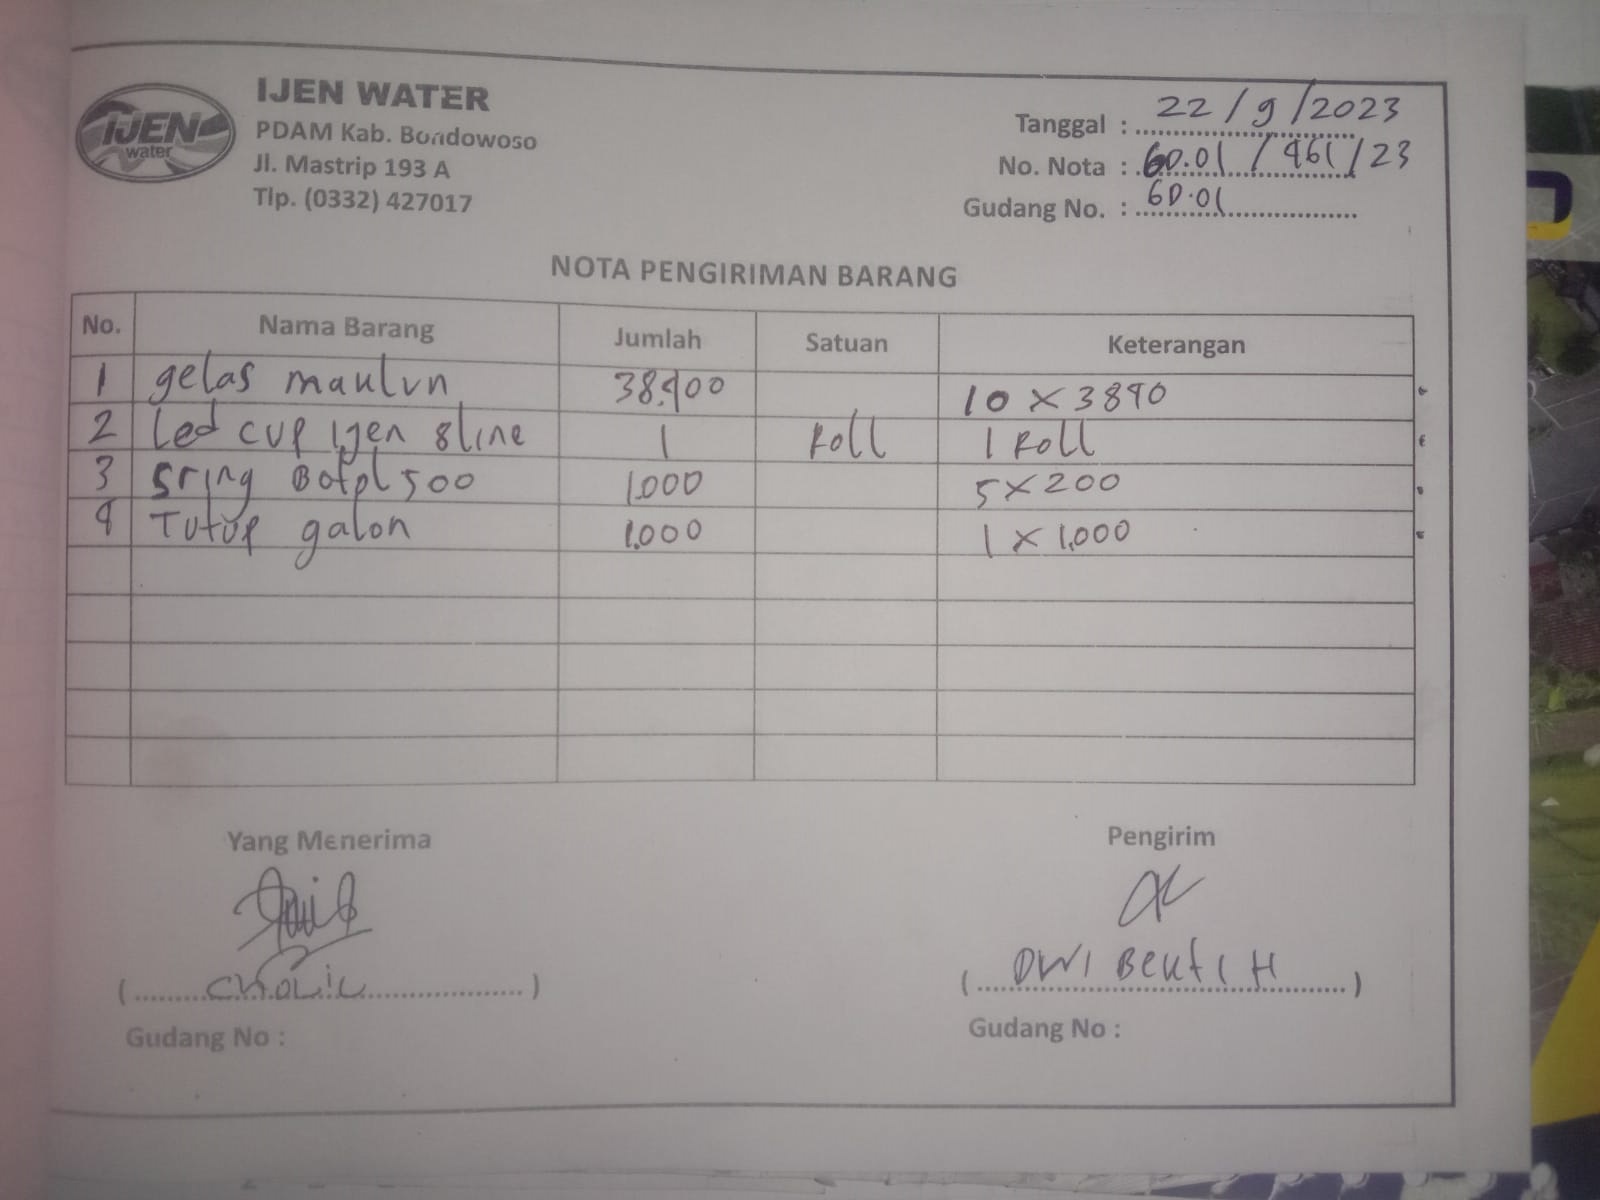 IJEN WATER
IJEN
water
PDAM Kab. Bondowoso
Jl. Mastrip 193 A
Tlp. (0332) 427017
Tanggal : 22/9/2023
No. Nota : 60.01/461/23
Gudang No. : 60.01
NOTA PENGIRIMAN BARANG
No. Nama Barang Jumlah Satuan Keterangan
1 gelas maulvn 38.400 10 x 3840
2 Led cup ijen 8line 1 Roll 1 Roll
3 sring Botol 500 1.000 5 x 200
4 Tutup galon 1.000 1 x 1.000
Yang Menerima Pengirim
( CHOLIL ) ( DWI H )
Gudang No : Gudang No :